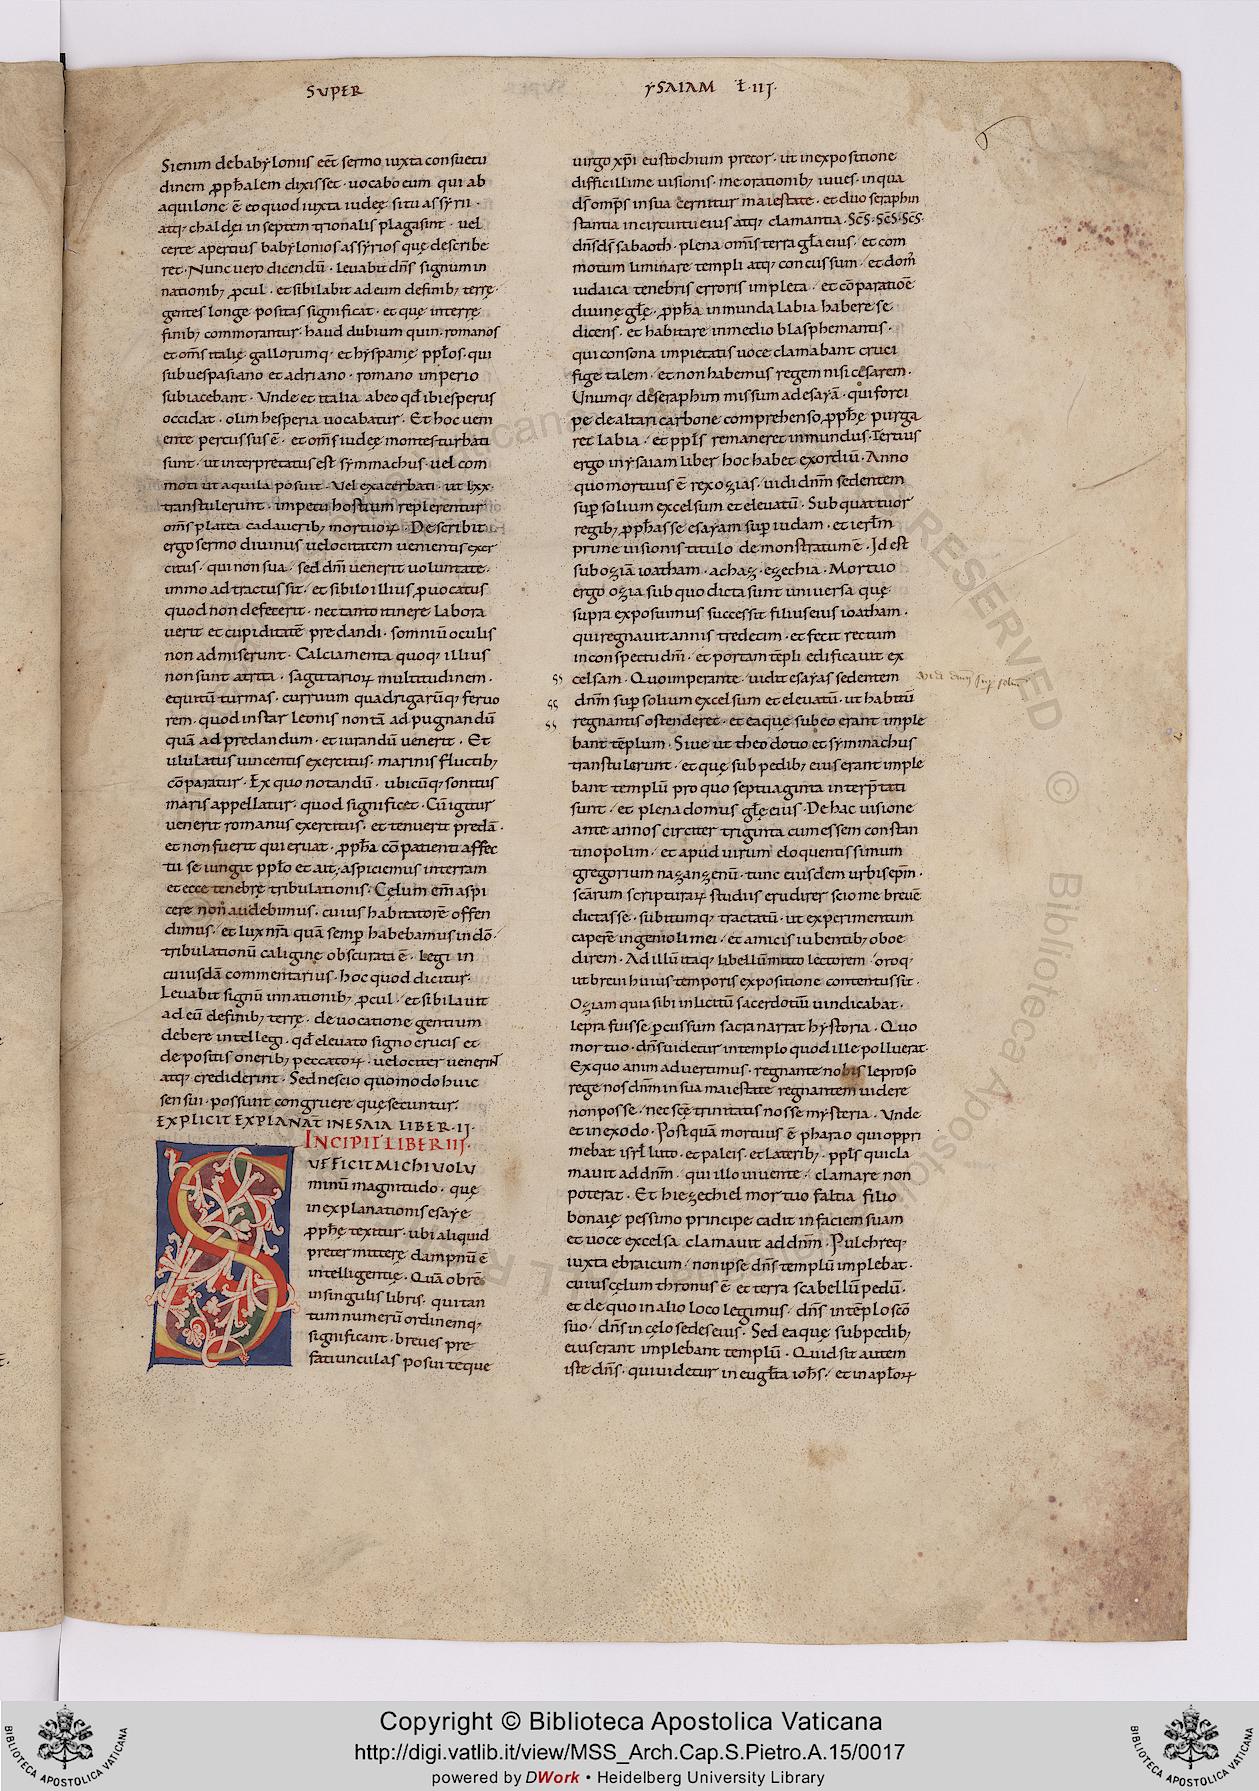 SUPER
ẏSAIAM Ł·III·
Sienim debabẏloniis eēt sermo iuxta consuetu
dinem ꝓph̄alem dixisset· uocabo eum qui ab
aquilone ē eo quod iuxta iudęę situ assẏrii·
atq; chaldęi in septemtrionalis plaga sint· uel
certe apertius babẏlonios assẏrios quę describe
ret· Nunc uero dicendū· leuabit dn̄s signum in
nationib; ꝓcul· et sibilabit ad eum definib; terrę·
gentes longe positas significat· et quę interrę
finib; commorantur· haud dubium quin· romanos
et om̄s italię gallorumq· et hẏspanię pp̄los· qui
sub uespasiano et adriano· romano imperio
subiacebant· Vnde et italia abeo qd̄ ibi esperus
occidat· olim hesperia uocabatur· Et hoc ueni
ente percussus ē· et om̄s iudęę montes turbati
sunt· ut interpretatus est sẏmmachus· uel com
moti ut aquila posuit· Vel exacerbati· ut lxx·
transtulerunt· impetu hostium replerentur
om̄s platea cadauerib; mortuoꝝ· Describit
ergo sermo diuinus uelocitatem uenientis exer
citus· qui non sua· sed dn̄i uenerit uoluntate·
immo adtractus sit· et sibilo illius ꝓuocatus
quod non defecerit· nec tanto itinere labora
uerit et cupiditatē predandi· somniū oculis
non admiserunt· Calciamenta quoq; illius
non sunt atrita· sagittarioꝝ multitudinem·
equitū turmas· curruum quadrigarūq; feruo
rem· quod instar leonis non tā ad pugnandū
quā ad predandum· et iurandū uenerit· Et
ululatus uincentis exercitus· marinis fluctib;
cōparatur· Ex quo notandū· ubicūq; sonitus
maris appellatur· quod significet· Cū igitur
uenerit romanus exercitus· et tenuerit predā·
et non fuerit qui eruat· ꝓph̄a cōpatienti affec
tu se iungit pp̄lo et ait; aspiciemus interram
et ecce tenebrę tribulationis· Cęlum em̄ aspi
cere non audebimus· cuius habitatorē offen
dimus· et lux nr̄a quā semꝑ habebamus in dō·
tribulationū caligine obscurata ē· Legi in
cuiusdā commentariis· hoc quod dicitur·
Leuabit signū in nationib; ꝓcul· et sibilauit
ad eū definib; terrę· de uocatione gentium
debere intellegi· qd̄ eleuato signo crucis et
depositis onerib; peccatoꝝ· uelociter uenerint
atq; crediderint· Sed nescio quomodo huic
sensui· possunt congruere quę secuntur·
EXPLICIT EXPLANAT̄ IN ESAIA LIBER·II·
INCIPIT LIBER III·
SUFFICIT MICHI VOLV
minū magnitudo· quę
in explanationis esaẏę
ꝓph̄ę texitur· ubi aliquid
preter mitterę dampnū ē
intelligentię· Quā obrē
in singulis libris· qui tan
tum numerū ordinemq;
significant· breues pre
fatiunculas posui teque
uirgo xp̄i eustochium precor· ut in expositione
difficillime uisionis· me orationib; iuues· in qua
ds̄ omp̄s in sua cernitur maiestate· et duo seraphin
stantia in circuitu eius atq; clamantia· Sc̄s· Sc̄s· Sc̄s·
dn̄s ds̄ sabaoth· plena om̄is terra gl̄a eius· et com
motum liminare templi atq; concussum· et dom̄
iudaica tenebris erroris impleta· et cōparatiōe
diuinę gl̄ę· ꝓph̄a inmunda labia habere se
dicens· et habitare in medio blasphemantis·
qui consona impietatis uoce clamabant cruci
fige talem· et non habemus regem nisi cęsarem·
Unumq; de seraphim missum ad esaẏā· qui forci
pe de altari carbone comprehenso ꝓph̄ę purga
ret labia· et pp̄ls remaneret inmundus· Tertius
ergo in ẏsaiam liber hoc habet exordiū· Anno
quo mortuus ē rex ozias· uidi dn̄m sedentem
suꝑ solium excelsum et eleuatū· Sub quattuor
regib; ꝓph̄asse esaẏam suꝑ iudam· et ierl̄m
prime uisionis titulo demonstratum ē· Id est
sub oziā ioatham· achaz· ezechia· Mortuo
ergo ozia sub quo dicta sunt uniuersa quę
supra exposuimus successit filius eius ioatham·
qui regnauit annis tredecim· et fecit rectum
in conspectu dn̄i· et portam tēpli edificauit ex
celsam· Quo imperante· uidit esaẏas sedentem
dn̄m suꝑ solium excelsum et eleuatū· ut habitū
regnantis ostenderet· et ea quę sub eo erant imple
bant tēplum· Siue ut theodotio et sẏmmachus
transtulerunt· et quę sub pedib; eius erant imple
bant templū pro quo septuaginta interp̄tati
sunt· et plena domus gl̄ę eius· De hac uisione
ante annos circiter triginta cum essem constan
tinopolim· et apud uirum eloquentissimum
gregorium nazanzenū· tunc eiusdem urbis ep̄m·
sc̄arum scripturaꝝ studiis erudirer scio me breuē
dictasse· subitumq; tractatū· ut experimentum
caperē ingenioli mei· et amicis iubentib; oboe
direm· Ad illū itaq; libellū mitto lectorem· oroq;
ut breui huius temporis expositione contentus sit·
Oziam quia sibi inlicitū sacerdotiū uindicabat·
lepra fuisse ꝑcussum sacra narrat hẏstoria· Quo
mortuo· dn̄s uidetur in templo quod ille polluerat·
Ex quo animaduertimus· regnante nobis leproso
rege nos dn̄m in sua maiestate regnantem uidere
non posse· nec sc̄ę trinitatis nosse mẏsteria· Vnde
et in exodo· Postquā mortuus ē pharao qui oppri
mebat isrl̄ luto· et paleis· et laterib;· pp̄ls qui cla
mauit ad dn̄m· qui illo uiuente· clamare non
poterat· Et hiezechiel mortuo faltia filio
bonaię pessimo principe cadit in faciem suam
et uoce excelsa clamauit ad dn̄m· Pulchreq;
iuxta ebraicum· non ipse dn̄s templū implebat·
cuius cęlum thronus ē et terra scabellū pedū·
et de quo in alio loco legimus· dn̄s in tēplo sc̄ō
suo· dn̄s in cęlo sedes eius· Sed ea quę sub pedib;
eius erant implebant templū· Quid sit autem
iste dn̄s· qui uidetur in eugl̄ta ioh̄s· et in apl̄oꝝ
Copyright © Biblioteca Apostolica Vaticana
http://digi.vatlib.it/view/MSS_Arch.Cap.S.Pietro.A.15/0017
powered by DWork • Heidelberg University Library
BIBLIOTECA APOSTOLICA VATICANA
BIBLIOTECA APOSTOLICA VATICANA